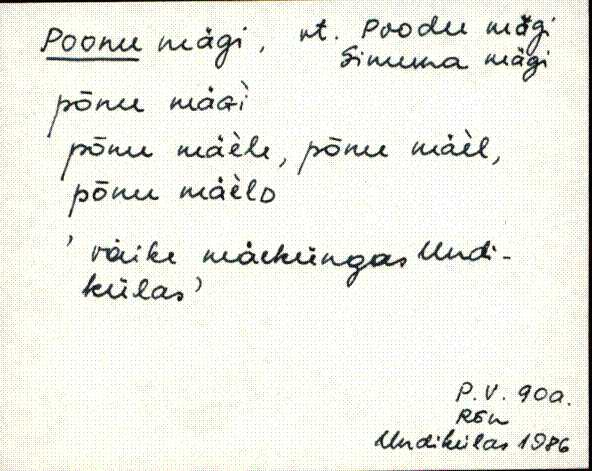 Poonu mägi, vt. Poodu mägi
Simuna mägi
pōnu mäGì̬
pōnu mäèle, pōnu mäèl,
pōnu mäèlD
' väike mäeküngas Undi-
külas'
P.V. 90a.
REn
Undikülas 1986